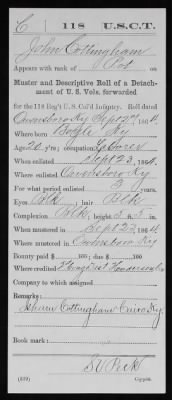 C | 118 | U.S.C.T.
John Cottingham
Appears with rank of Pvt on
Muster and Descriptive Roll of a Detach-
ment of U. S. Vols. forwarded
for the 118 Reg't U.S. Col'd Infantry. Roll dated
Owensboro Ky Sept 27, 1864.
Where born Boyle Ky
Age 20 y'rs; occupation Laborer
When enlisted Sept 23, 1864.
Where enlisted Owensboro Ky
For what period enlisted 3 years.
Eyes Blk; hair Blk
Complexion Blk; height 5 ft. in.
When mustered in Sept 23, 1864.
Where mustered in Owensboro Ky
Bounty paid $ 100; due $ 100
Where credited Henderson
Company to which assigned
Remarks:
Cottingham Ky
Book mark:
S V Peck
(339) Copyist.